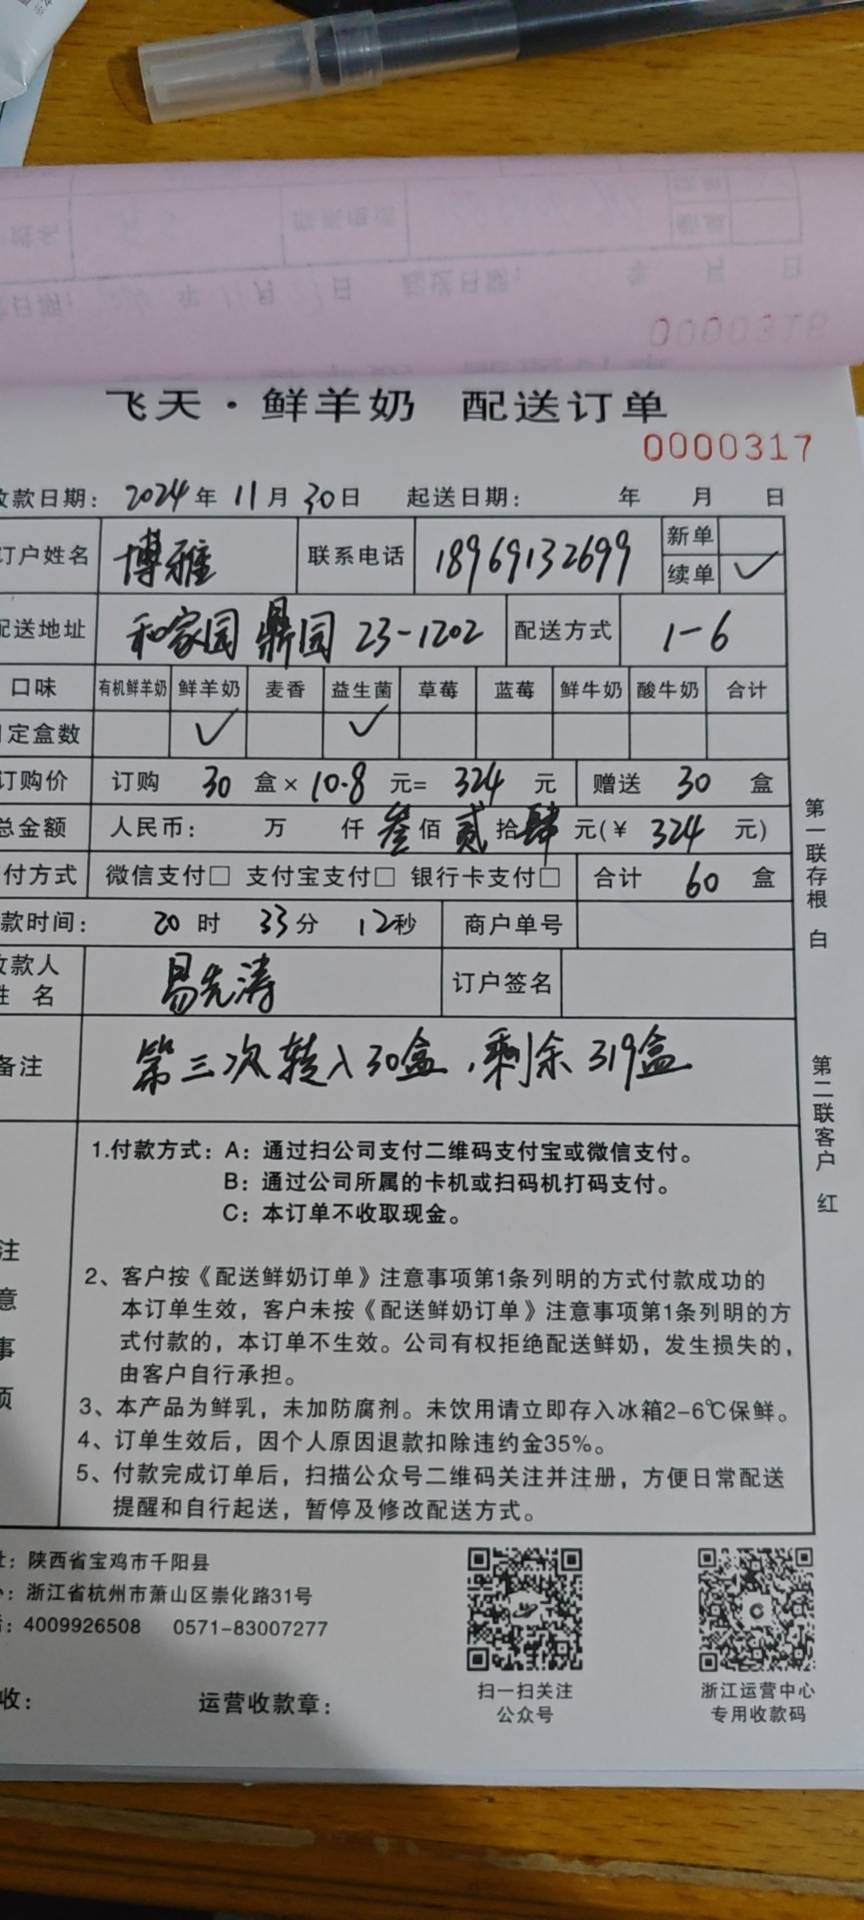 飞天·鲜羊奶 配送订单
0000317
收款日期: 2024年11月30日 起送日期: 年 月 日
订户姓名 博雅 联系电话 18969132699 新单
续单 ✓
配送地址 和家园鼎园23-1202 配送方式 1-6
口味 有机鲜羊奶 鲜羊奶 麦香 益生菌 草莓 蓝莓 鲜牛奶 酸牛奶 合计
定盒数 ✓ ✓
订购价 订购 30 盒× 10.8 元= 324 元 赠送 30 盒
总金额 人民币: 万 仟 叁佰贰拾肆元(¥ 324 元)
付方式 微信支付□ 支付宝支付□ 银行卡支付□ 合计 60 盒
款时间: 20时 33分 12秒 商户单号
收款人
姓 名 易先涛 订户签名
备注 第三次转入30盒,剩余319盒
第一联存根 白
第二联客户 红
注意事项
1.付款方式: A: 通过扫公司支付二维码支付宝或微信支付。
B: 通过公司所属的卡机或扫码机打码支付。
C: 本订单不收取现金。
2、客户按《配送鲜奶订单》注意事项第1条列明的方式付款成功的
本订单生效，客户未按《配送鲜奶订单》注意事项第1条列明的方
式付款的，本订单不生效。公司有权拒绝配送鲜奶，发生损失的，
由客户自行承担。
3、本产品为鲜乳，未加防腐剂。未饮用请立即存入冰箱2-6℃保鲜。
4、订单生效后，因个人原因退款扣除违约金35%。
5、付款完成订单后，扫描公众号二维码关注并注册，方便日常配送
提醒和自行起送，暂停及修改配送方式。
址: 陕西省宝鸡市千阳县
: 浙江省杭州市萧山区崇化路31号
: 4009926508 0571-83007277
收: 运营收款章:
扫一扫关注
公众号
浙江运营中心
专用收款码